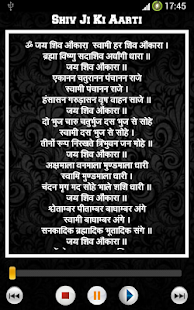 17:45
Shiv Ji Ki Aarti
ॐ जय शिव ओंकारा स्वामी हर शिव ओंकारा ।
ब्रह्मा विष्णु सदाशिव अर्धांगी धारा ॥
जय शिव ओंकारा ॥
एकानन चतुरानन पंचानन राजे
स्वामी पंचानन राजे ।
हंसासन गरुड़ासन वृष वाहन साजे ॥
जय शिव ओंकारा ॥
दो भुज चारु चतुर्भुज दस भुज से सोहे
स्वामी दस भुज से सोहे ।
तीनों रूप निरखते त्रिभुवन जन मोहे ॥
जय शिव ओंकारा ॥
अक्षमाला वनमाला मुण्डमाला धारी
स्वामी मुण्डमाला धारी ।
चंदन मृग मद सोहे भाले शशि धारी ॥
जय शिव ओंकारा ॥
श्वेताम्बर पीताम्बर बाघाम्बर अंगे
स्वामी बाघाम्बर अंगे ।
सनकादिक ब्रह्मादिक भूतादिक संगे ॥
जय शिव ओंकारा ॥